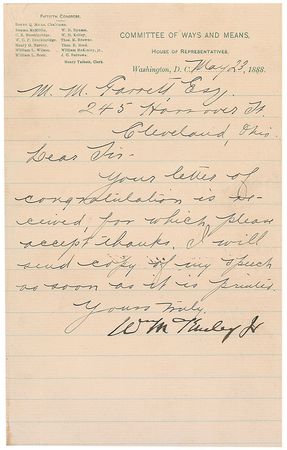 FIFTIETH CONGRESS.
ROGER Q. MILLS, Chairman.
Benton McMillin,
C. R. Breckinridge,
W. C. P. Breckinridge,
Henry G. Turner,
William L. Wilson,
William L. Scott,
W. D. Bynum.
W. D. Kelley,
Thos. M. Browne,
Thos. B. Reed,
William McKinley, jr.
J. C. Burrows.
Henry Talbott, Clerk.
COMMITTEE OF WAYS AND MEANS,
HOUSE OF REPRESENTATIVES,
Washington, D. C. May 23, 1888.
M. M. Esq
245 Hanover St.
Cleveland, Ohio.
Dear Sir-
Your letter of
congratulation is re-
ceived, for which please
accept thanks. I will
send copy of my speech
as soon as it is printed.
Yours truly,
Wm McKinley Jr